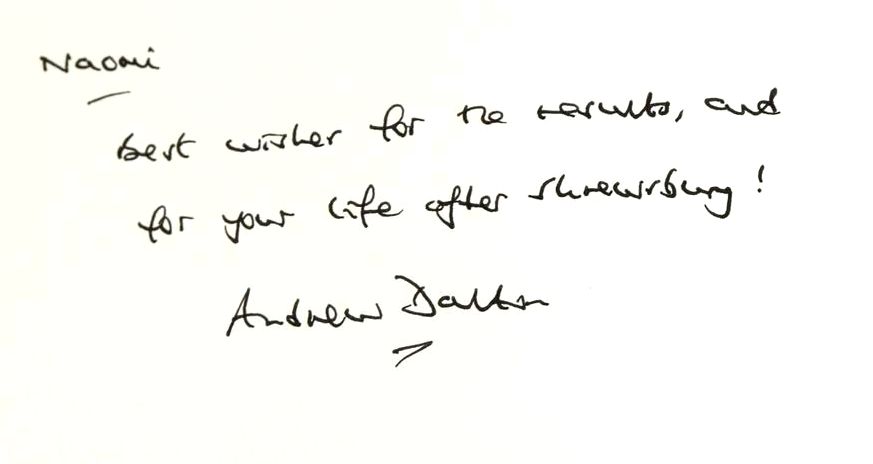 Naomi
best wishes for the results, and
for your life after Shrewsbury!
Andrew Dalton